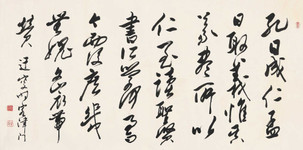 孔曰成仁孟
曰取義惟其
義盡所以
仁至讀聖賢
書所學何事
今而後庶幾
無愧衣帶
贊